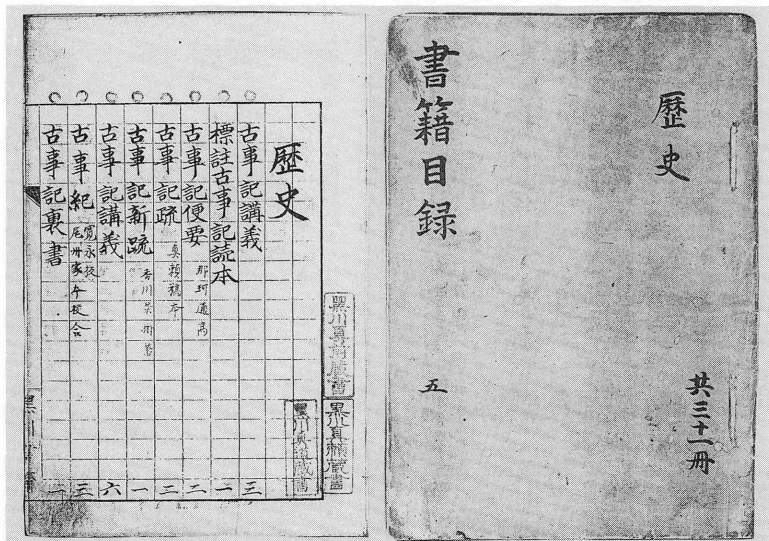 歴史
共三十一冊
書籍目録
五
黒川真頼蔵書
黒川真道蔵書
歴史
古事記講義 三
標註古事記読本 一
古事記便要 那珂通高 二
古事記疏 真頼稿本 二
古事記新疏 香川 一
古事記講義 六
古事紀 寛永板 尾州家本校合 三
古事記裏書 一